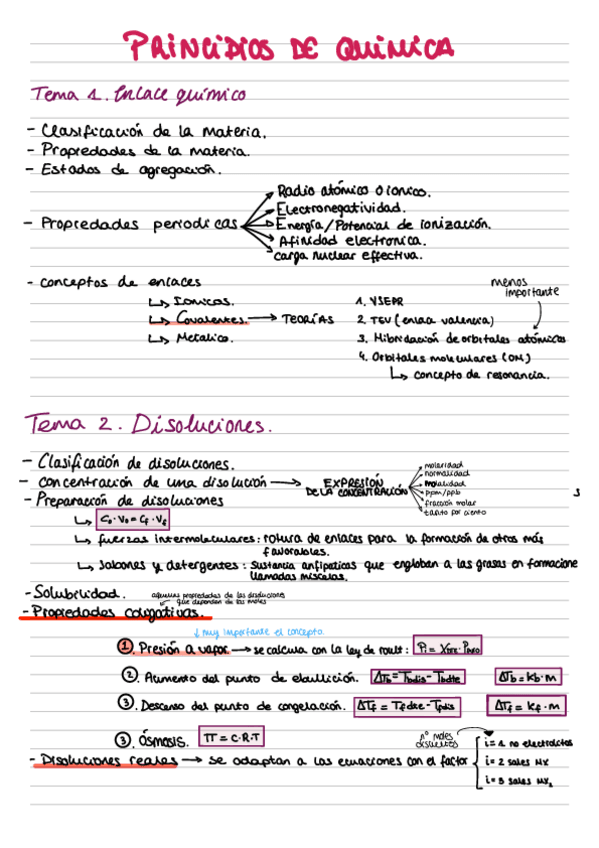 PRINCIPIOS DE QUIMICA
Tema 1. Enlace químico
- Clasificación de la materia.
- Propiedades de la materia.
- Estados de agregación.
- Propiedades periodicas
Radio atómico o ionico.
Electronegatividad.
Energía/Potencial de ionización.
Afinidad electronica.
carga nuclear effectiva.
- conceptos de enlaces
↳ Ionicos.
↳ Covalentes. → TEORÍAS
↳ Metalico.
menos importante
1. VSEPR
2. TEV (enlace valencia)
3. Hibridación de orbitales atómicos
4. Orbitales moleculares (OM)
↳ concepto de resonancia.
Tema 2. Disoluciones.
- Clasificación de disoluciones.
- concentración de una disolución → EXPRESIÓN DE LA CONCENTRACIÓN
molaridad
normalidad
molalidad
ppm/ppb
fracción molar
tanto por ciento
- Preparación de disoluciones
↳ C₀·V₀ = Cf·Vf
↳ fuerzas intermoleculares: rotura de enlaces para la formación de otros más
favorables.
↳ Jabones y detergentes: sustancia anfipaticas que engloban a las grasas en formacione
llamadas micelas.
- Solubilidad.
algunas propiedades de las disoluciones
que dependen de los moles
- Propiedades coligativas.
↓ muy importante el concepto.
① Presión a vapor → se calcula con la ley de roult:
② Aumento del punto de ebullición. ΔTb = Tbdis - Tbdte ΔTb = kb·m
③ Descenso del punto de congelación. ΔTf = Tfdte - Tfdis ΔTf = kf·m
③ Ósmosis. π = C·R·T
nº moles
disueltos
- Disoluciones reales → se adaptan a las ecuaciones con el factor
i = 1 no electrolitos
i = 2 sales MX
i = 3 sales MX₂